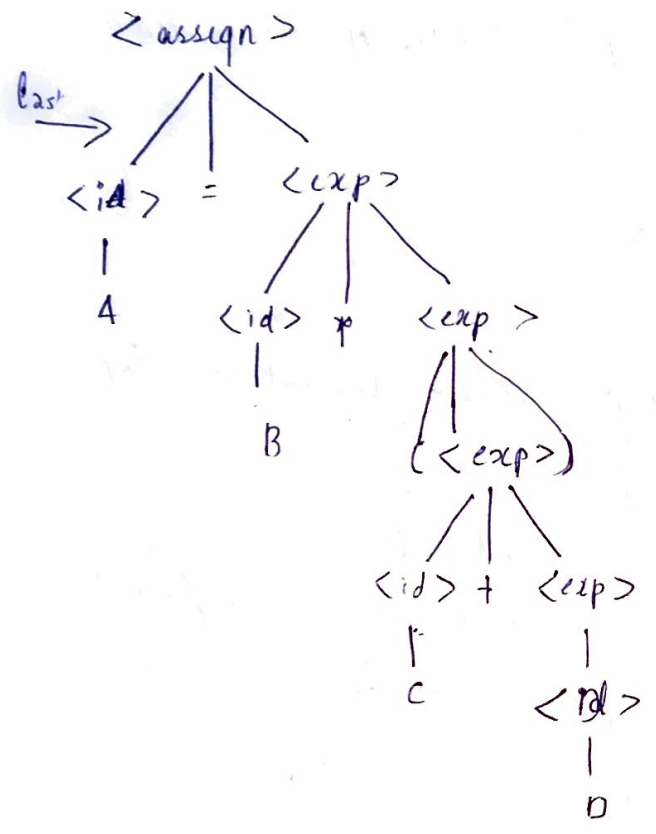 <assign>
Last
<id> = <exp>
A <id> * <exp>
B
(<exp>)
<id> + <exp>
C <id>
D